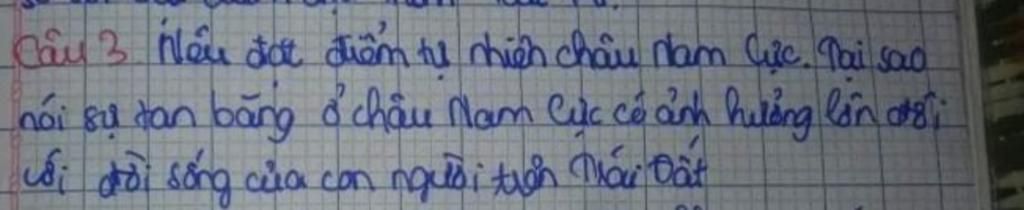 Câu 3 Nêu đặc điểm tự nhiên châu Nam Cực. Tại sao
nói sự tan băng ở châu Nam Cực có ảnh hưởng lớn đối
với đời sống của con người trên Trái Đất